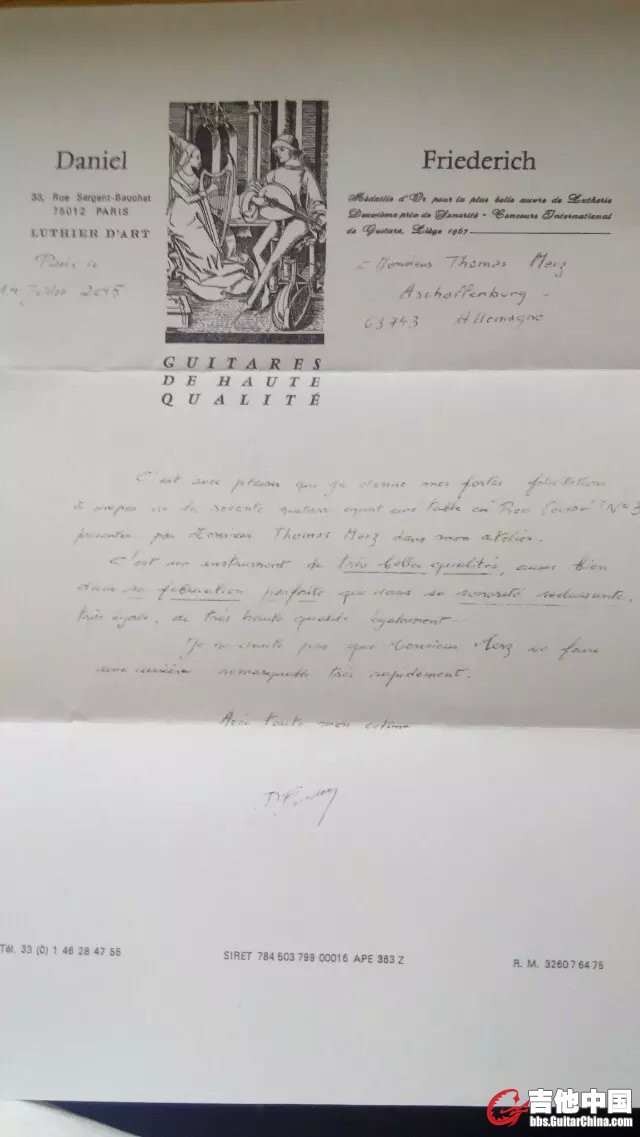 Daniel
Friederich
33, Rue Sergent-Bauchat
75012 PARIS
LUTHIER D'ART
Médaille d'Or pour la plus belle œuvre de Lutherie
Deuxième prix de Sonorité - Concours International
de Guitare, Liège 1967
Paris le
2015
Monsieur Thomas Merz
Aschaffenburg -
63743 Allemagne
GUITARES
DE HAUTE
QUALITÉ
C'est avec plaisir que je donne mes fortes félicitations
à propos de la récente guitare ayant une table en "Red Cedar" N°
présentée par Monsieur Thomas Merz dans mon atelier.
C'est un instrument de très belles qualités, aussi bien
dans sa fabrication parfaite que dans sa sonorité séduisante,
très égale, de très haute qualité également.
Je ne doute pas que Monsieur Merz ne fasse
une carrière remarquable très rapidement.
Avec toute mon estime
Tél. 33 (0) 1 46 28 47 55
SIRET 784 503 799 00016 APE 363 Z
R. M. 3260764 75
吉他中国
bbs.GuitarChina.com